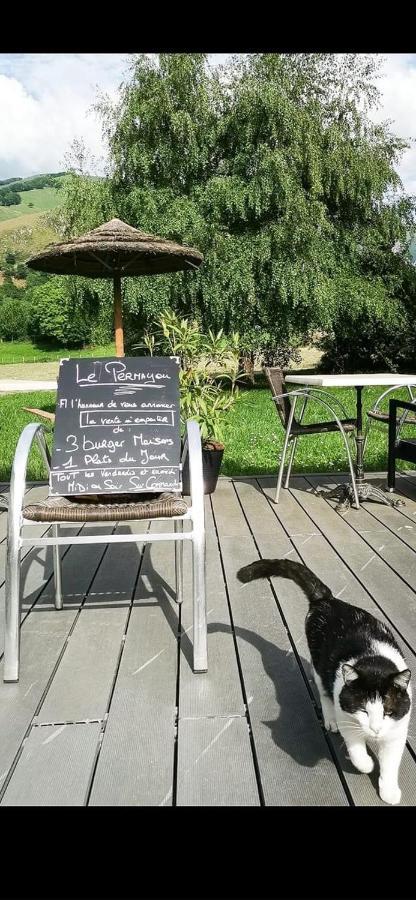 Le Permayou
A l'honneur de vous annoncer
la vente à emporter
de :
- 3 burger Maisons
- 1 Plats du Jour
Tout les Vendredis et
Midi ou Soir Sur Commande